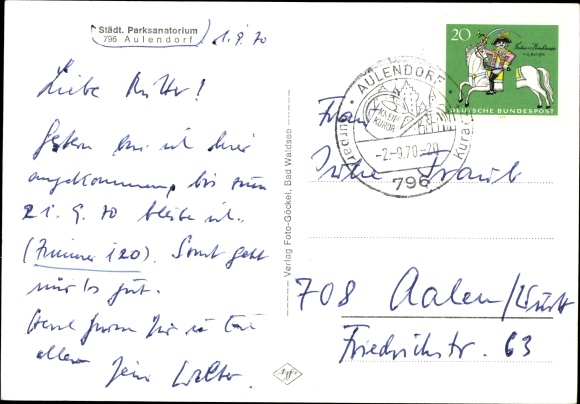 Städt. Parksanatorium
796 Aulendorf
1.9.70
Liebe Mutter!
Gestern bin ich hier
angekommen, bis zum
21.9.70 bleibe ich
(Zimmer 120). Sonst geht
mir es gut.
allen Dein Walter.
Verlag Foto-Göckel, Bad Waldsee
20
DEUTSCHE BUNDESPOST
AULENDORF
KNEIPP
KUROR
-2.-9.70-20
796
Frau
Traub
708 Aalen/Württ
Friedrichstr. 63